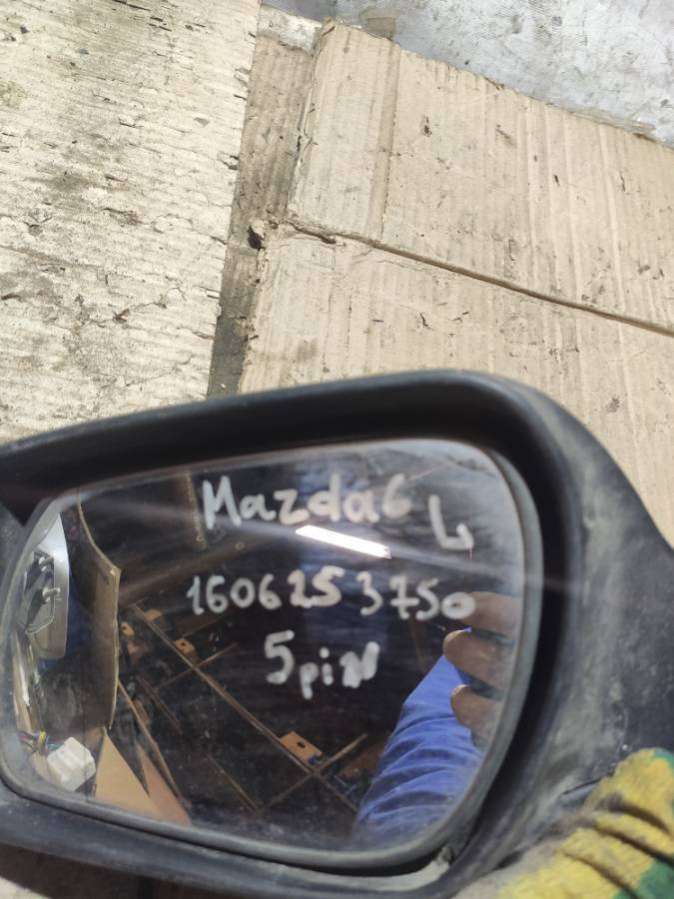 Mazda6 L
1606253750
5pin